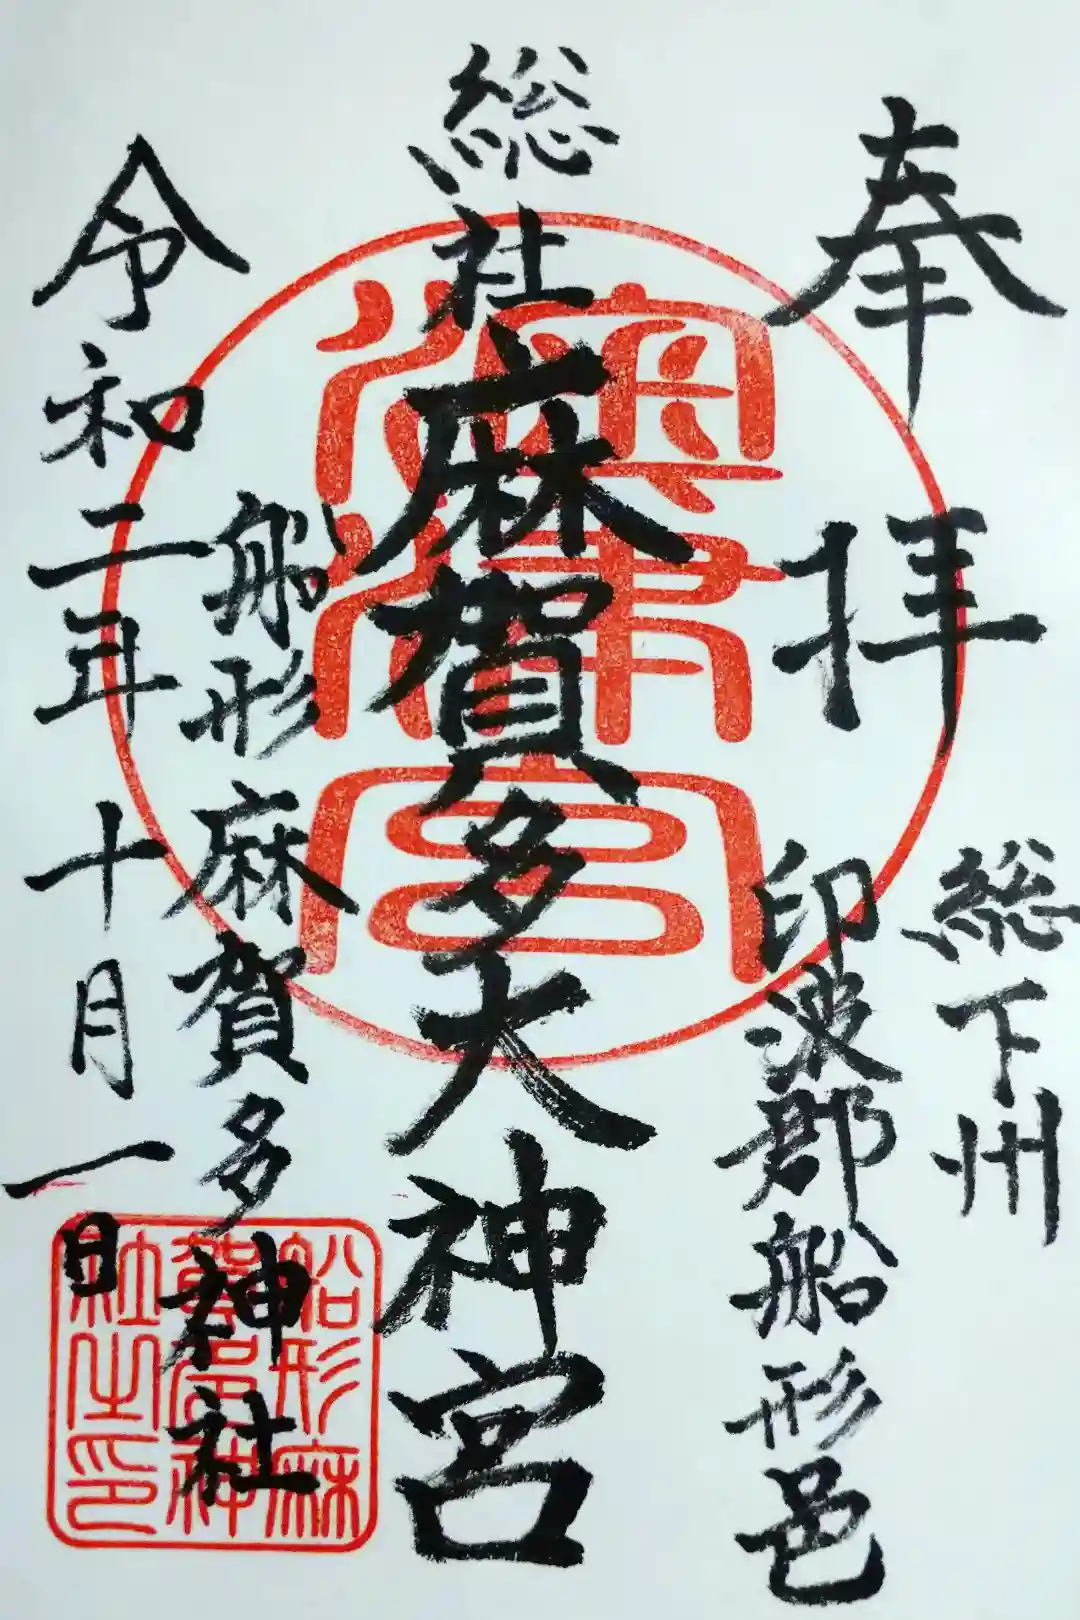 奉拝
総下州
印波郡船形邑
総社麻賀多大神宮
船形麻賀多神社
令和二年十月一日
奥津宮
船形麻
賀多神
社之印